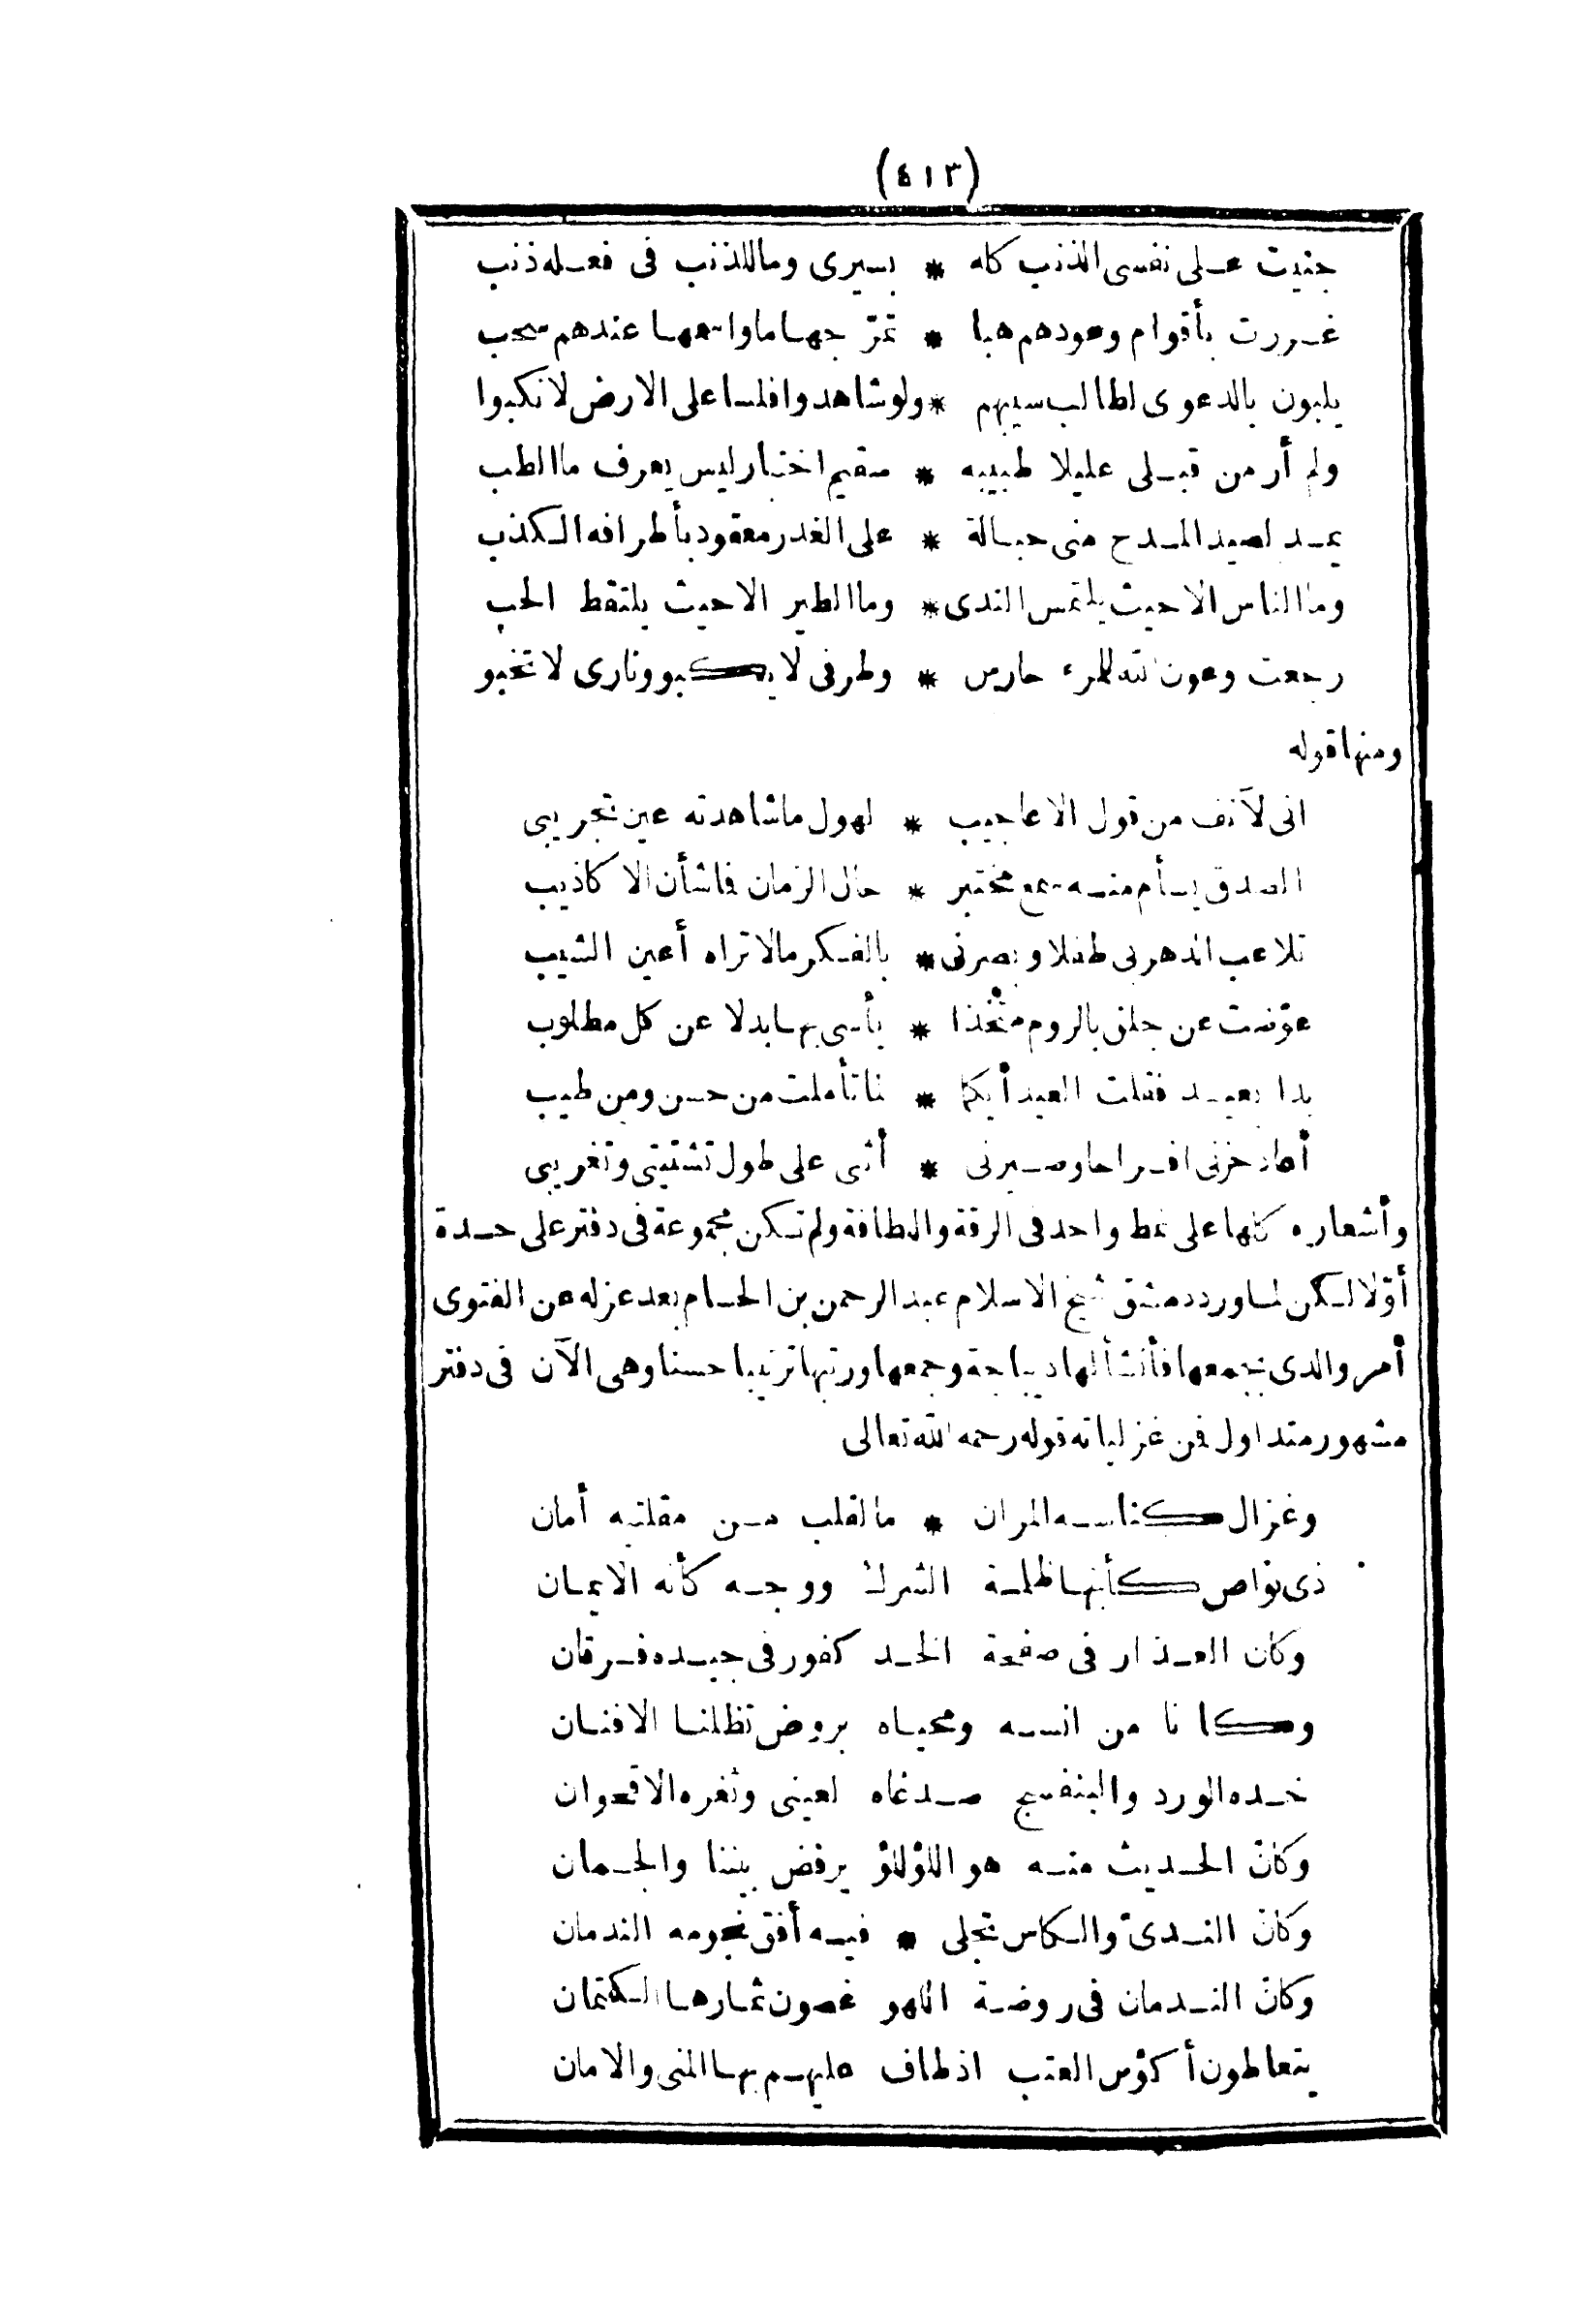 (٤١٣)
جنيت على نفسى الذنب كله * بسيرى وما للذنب فى فعله ذنب
غررت بأقوام وعودهم هبا * تمرّ جهاما واسمها عندهم سحب
يلبون بالدعوى لطالب سيبهم * ولو شاهدوا فلسا على الارض لانكبوا
ولم أر من قبلى عليلا طبيبه * سقيم اختبار ليس يعرف ما الطب
يمد لصيد المدح منى حبالة * على الغدر معقود بأطرافه الكذب
وما الناس الا حيث يلتمس الندى * وما الطير الا حيث يلتقط الحب
رجعت وعون الله للمرء حارس * وطرفى لا يكبو ونارى لا تخبو
ومنها قوله
انى لآنف من قول الاعاجيب * لهول ما شاهدته عين تجريبى
الصدق يسأم منه سمع مختبر * حال الزمان فما شأن الاكاذيب
تلاعب الدهر بى طفلا وبصرنى * بالفكر ما لا تراه أعين الشيب
عوّضت عن جلق بالروم متخذا * يأسى بها بدلا عن كل مطلوب
بدا بعيد فقلت العيد أيكما * لما تأملت من حسن ومن طيب
أعاد حزنى افراحا وصيرنى * أثنى على طول تشتيتى وتغريبى
وأشعاره كلها على نمط واحد فى الرقة واللطافة ولم تكن مجموعة فى دفتر على حدة
أوّلا لكن لما ورد دمشق شيخ الاسلام عبد الرحمن بن الحسام بعد عزله عن الفتوى
أمر والدى بجمعها فأنشأ لها ديباجة وجمعها ورتبها ترتيبا حسنا وهى الآن فى دفتر
مشهور متداول فمن غزلياته قوله رحمه الله تعالى
وغزال كناسه المران * ما لقلب من مقلتيه أمان
ذى نواص كأنها ظلمة الشرك ووجه كأنه الايمان
وكان العذار فى صفحة الخد كفور فى جيده فرقان
وكانا من انسه ومحياه بروض تظلنا الافنان
خده الورد والبنفسج صدغاه لعينى وثغره الاقحوان
وكانّ الحديث منه هو اللؤلؤ يرفض بيننا والجمان
وكانّ الندىّ والكاس تجلى * فيه أفق نجومه الندمان
وكانّ الندمان فى روضة اللهو غصون ثمارها الكتمان
يتعاطون أكؤس العتب اذ طاف عليهم بها المنى والامان